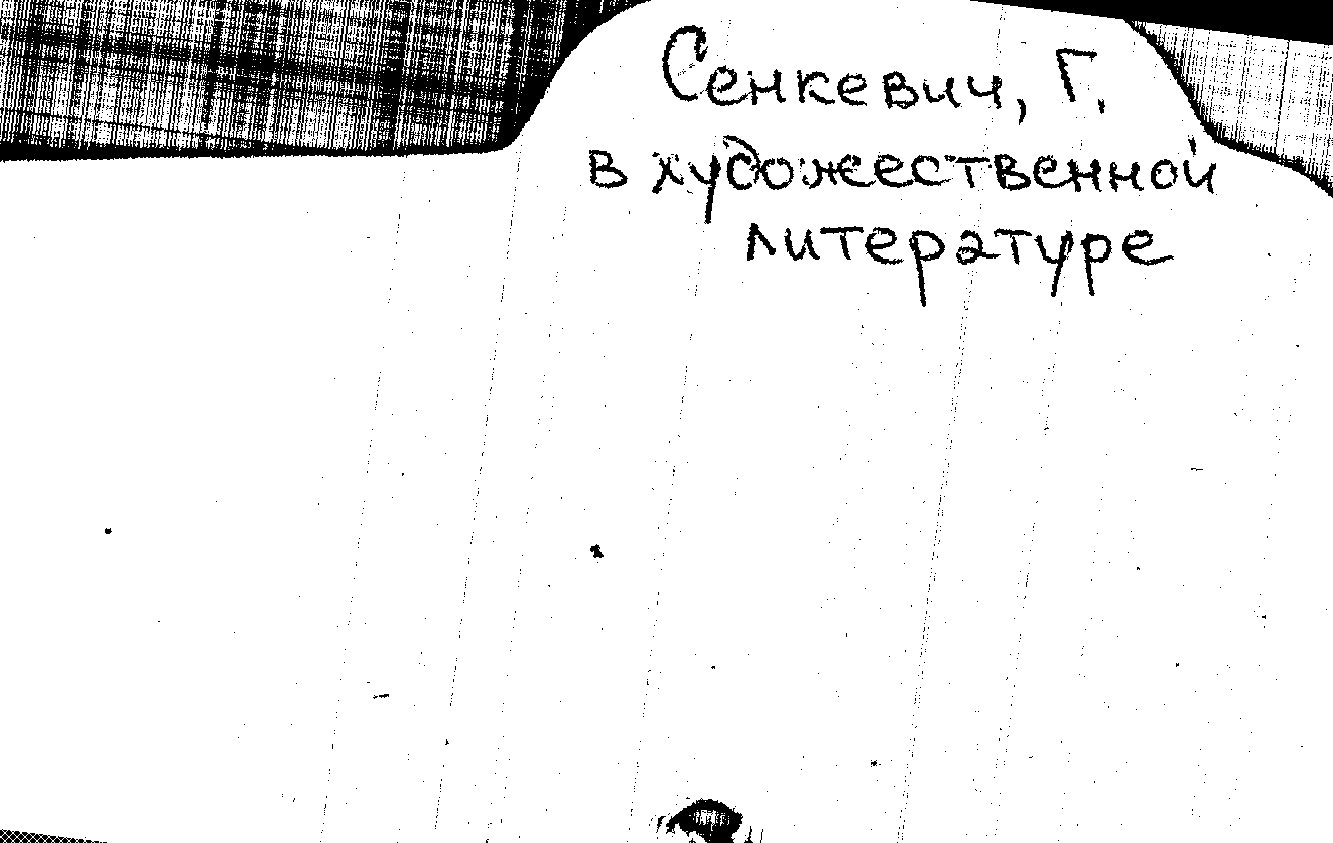 Сенкевич, Г.
в художественной
литературе